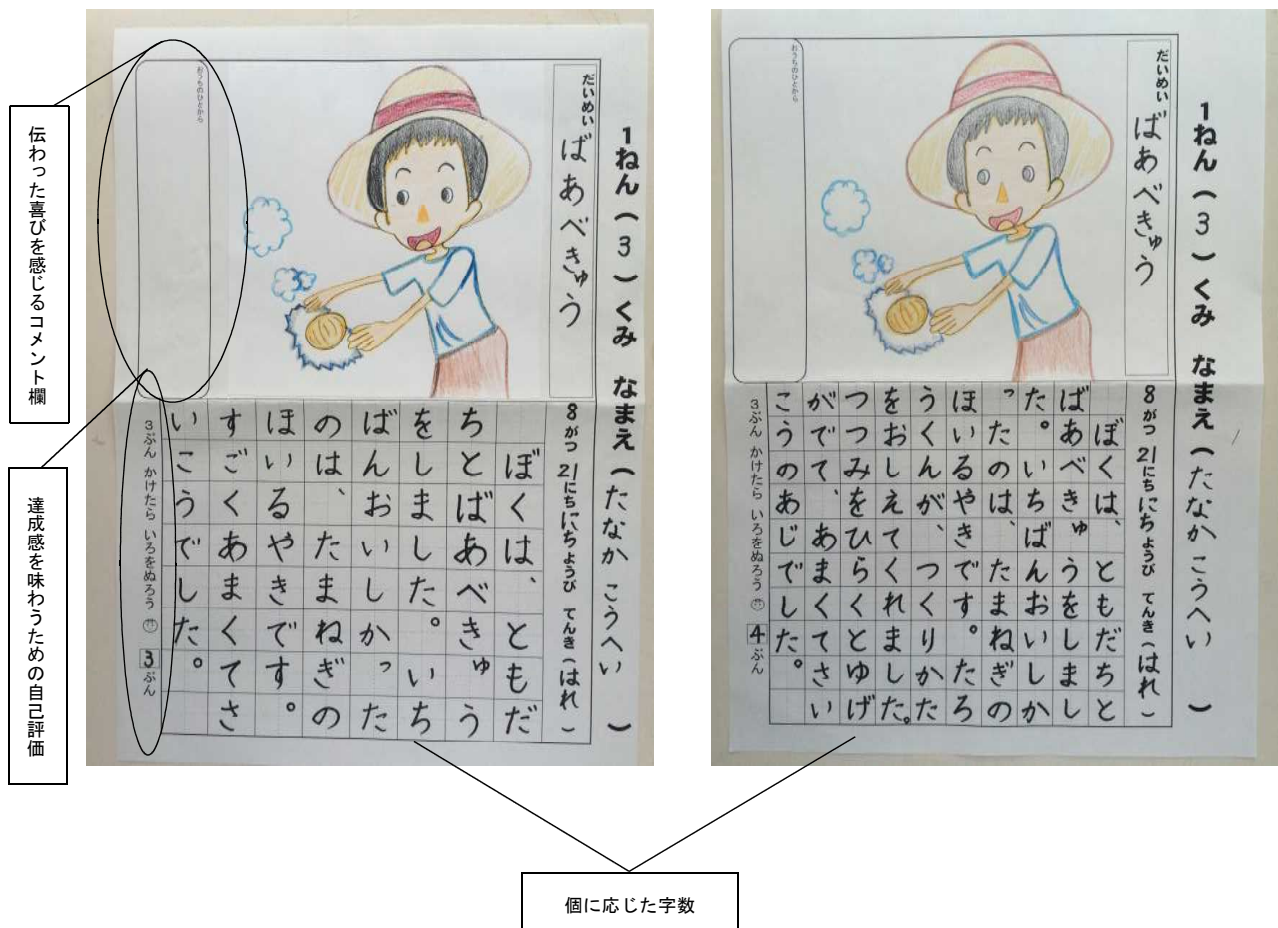 伝わった喜びを感じるコメント欄
達成感を味わうための自己評価
1ねん(3)くみ なまえ(たなか こうへい)
だいめい ばあべきゅう
おうちのひとから
8がつ 21にち にちようび てんき(はれ)
ぼくは、ともだ
ちとばあべきゅう
をしました。いち
ばんおいしかった
のは、たまねぎの
ほいるやきです。
すごくあまくてさ
いこうでした。
3ぶん かけたら いろをぬろう 3ぶん
1ねん(3)くみ なまえ(たなか こうへい)
だいめい ばあべきゅう
おうちのひとから
8がつ 21にち にちようび てんき(はれ)
ぼくは、ともだちと
ばあべきゅうをしまし
た。いちばんおいしか
ったのは、たまねぎの
ほいるやきです。たろ
うくんが、つくりかた
をおしえてくれました。
つつみをひらくとゆげ
がでて、あまくてさい
こうのあじでした。
3ぶん かけたら いろをぬろう 4ぶん
個に応じた字数